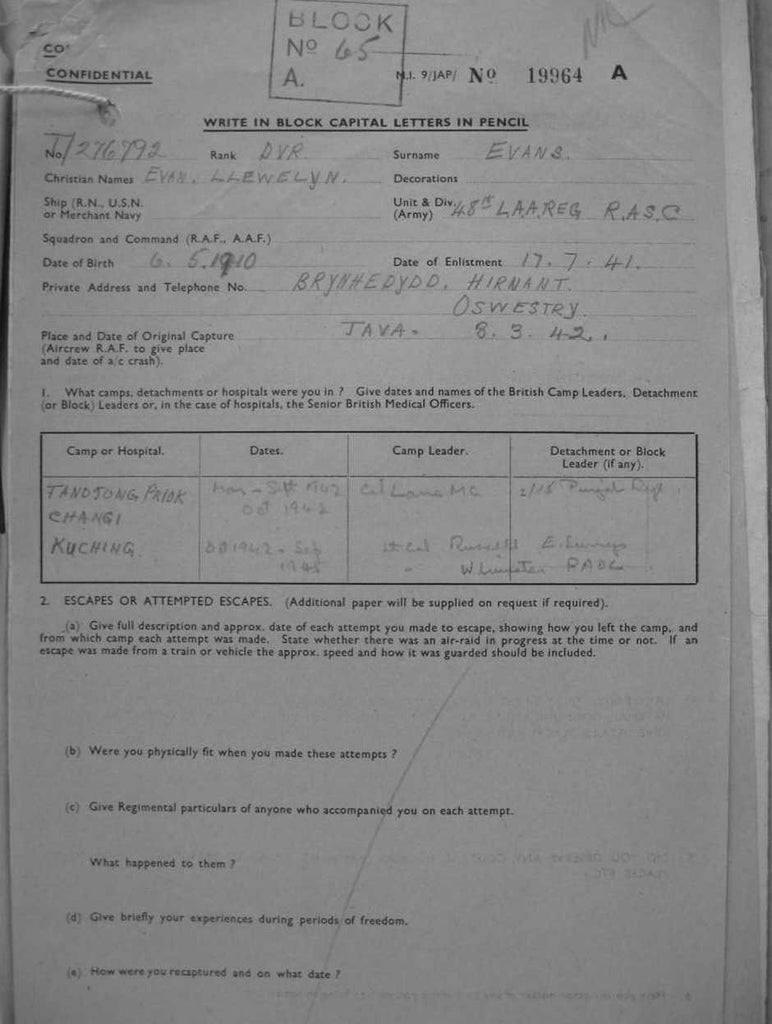 BLOCK
Nº 65
A.
CO
CONFIDENTIAL
M.I. 9/JAP/ Nº 19964 A
WRITE IN BLOCK CAPITAL LETTERS IN PENCIL
No. T/276792 Rank DVR Surname EVANS.
Christian Names EVAN. LLEWELYN. Decorations
Ship (R.N., U.S.N. or Merchant Navy
Unit & Div. (Army) 48th L.A.A.REG R.A.S.C
Squadron and Command (R.A.F., A.A.F.)
Date of Birth 6. 5. 1910 Date of Enlistment 17. 7. 41.
Private Address and Telephone No. BRYNHEDYDD. HIRNANT.
OSWESTRY.
Place and Date of Original Capture JAVA. 8. 3. 42.
(Aircrew R.A.F. to give place
and date of a/c crash).
1. What camps, detachments or hospitals were you in ? Give dates and names of the British Camp Leaders, Detachment
(or Block) Leaders or, in the case of hospitals, the Senior British Medical Officers.
Camp or Hospital. Dates. Camp Leader. Detachment or Block Leader (if any).
TANDJONG PRIOK Mar - Sept 1942 Col Lane MC 2/15 Punjab Regt
CHANGI Oct 1942
KUCHING. Oct 1942 - Sep 1945 Lt Col Russell E. Surreys
" RAOC
2. ESCAPES OR ATTEMPTED ESCAPES. (Additional paper will be supplied on request if required).
(a) Give full description and approx. date of each attempt you made to escape, showing how you left the camp, and
from which camp each attempt was made. State whether there was an air-raid in progress at the time or not. If an
escape was made from a train or vehicle the approx. speed and how it was guarded should be included.
(b) Were you physically fit when you made these attempts ?
(c) Give Regimental particulars of anyone who accompanied you on each attempt.
What happened to them ?
(d) Give briefly your experiences during periods of freedom.
(e) How were you recaptured and on what date ?